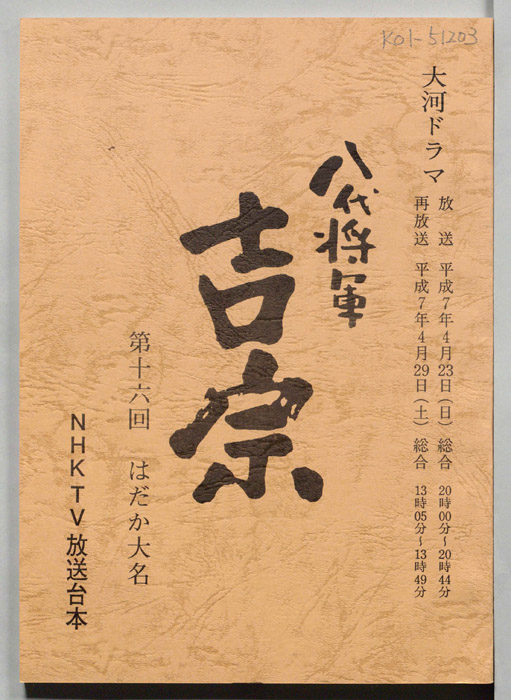 K01-51203
大河ドラマ
放送 平成7年4月23日(日) 総合 20時00分～20時44分
再放送 平成7年4月29日(土) 総合 13時05分～13時49分
八代将軍
吉宗
第十六回 はだか大名
NHKTV放送台本